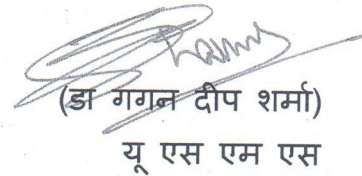 (डा गगन दीप शर्मा)
यू एस एम एस